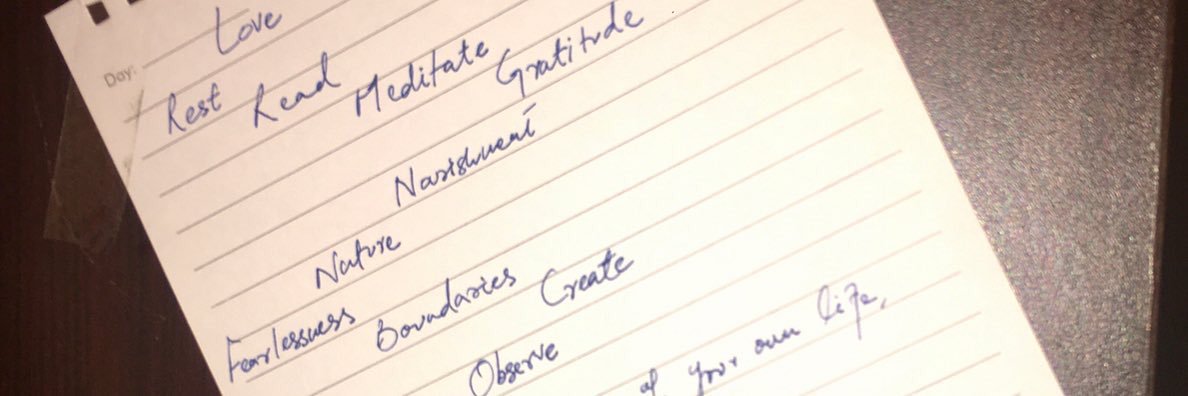 Love
Day:
Rest Read Meditate Gratitude
Narishment
Nature
Fearlessness Boundaries Create
Observe
of your own life,